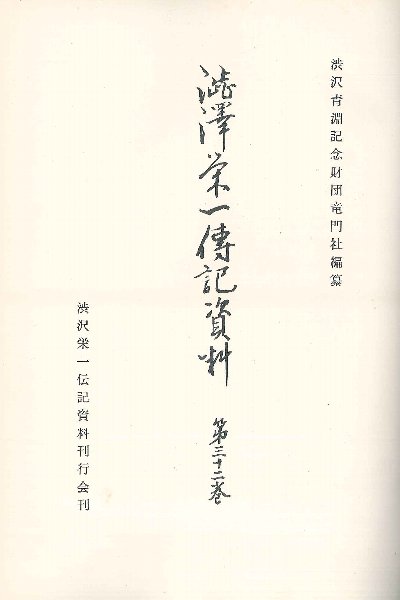 渋沢青淵記念財団竜門社編纂
澁澤栄一傳記資料
第三十二巻
渋沢栄一伝記資料刊行会刊